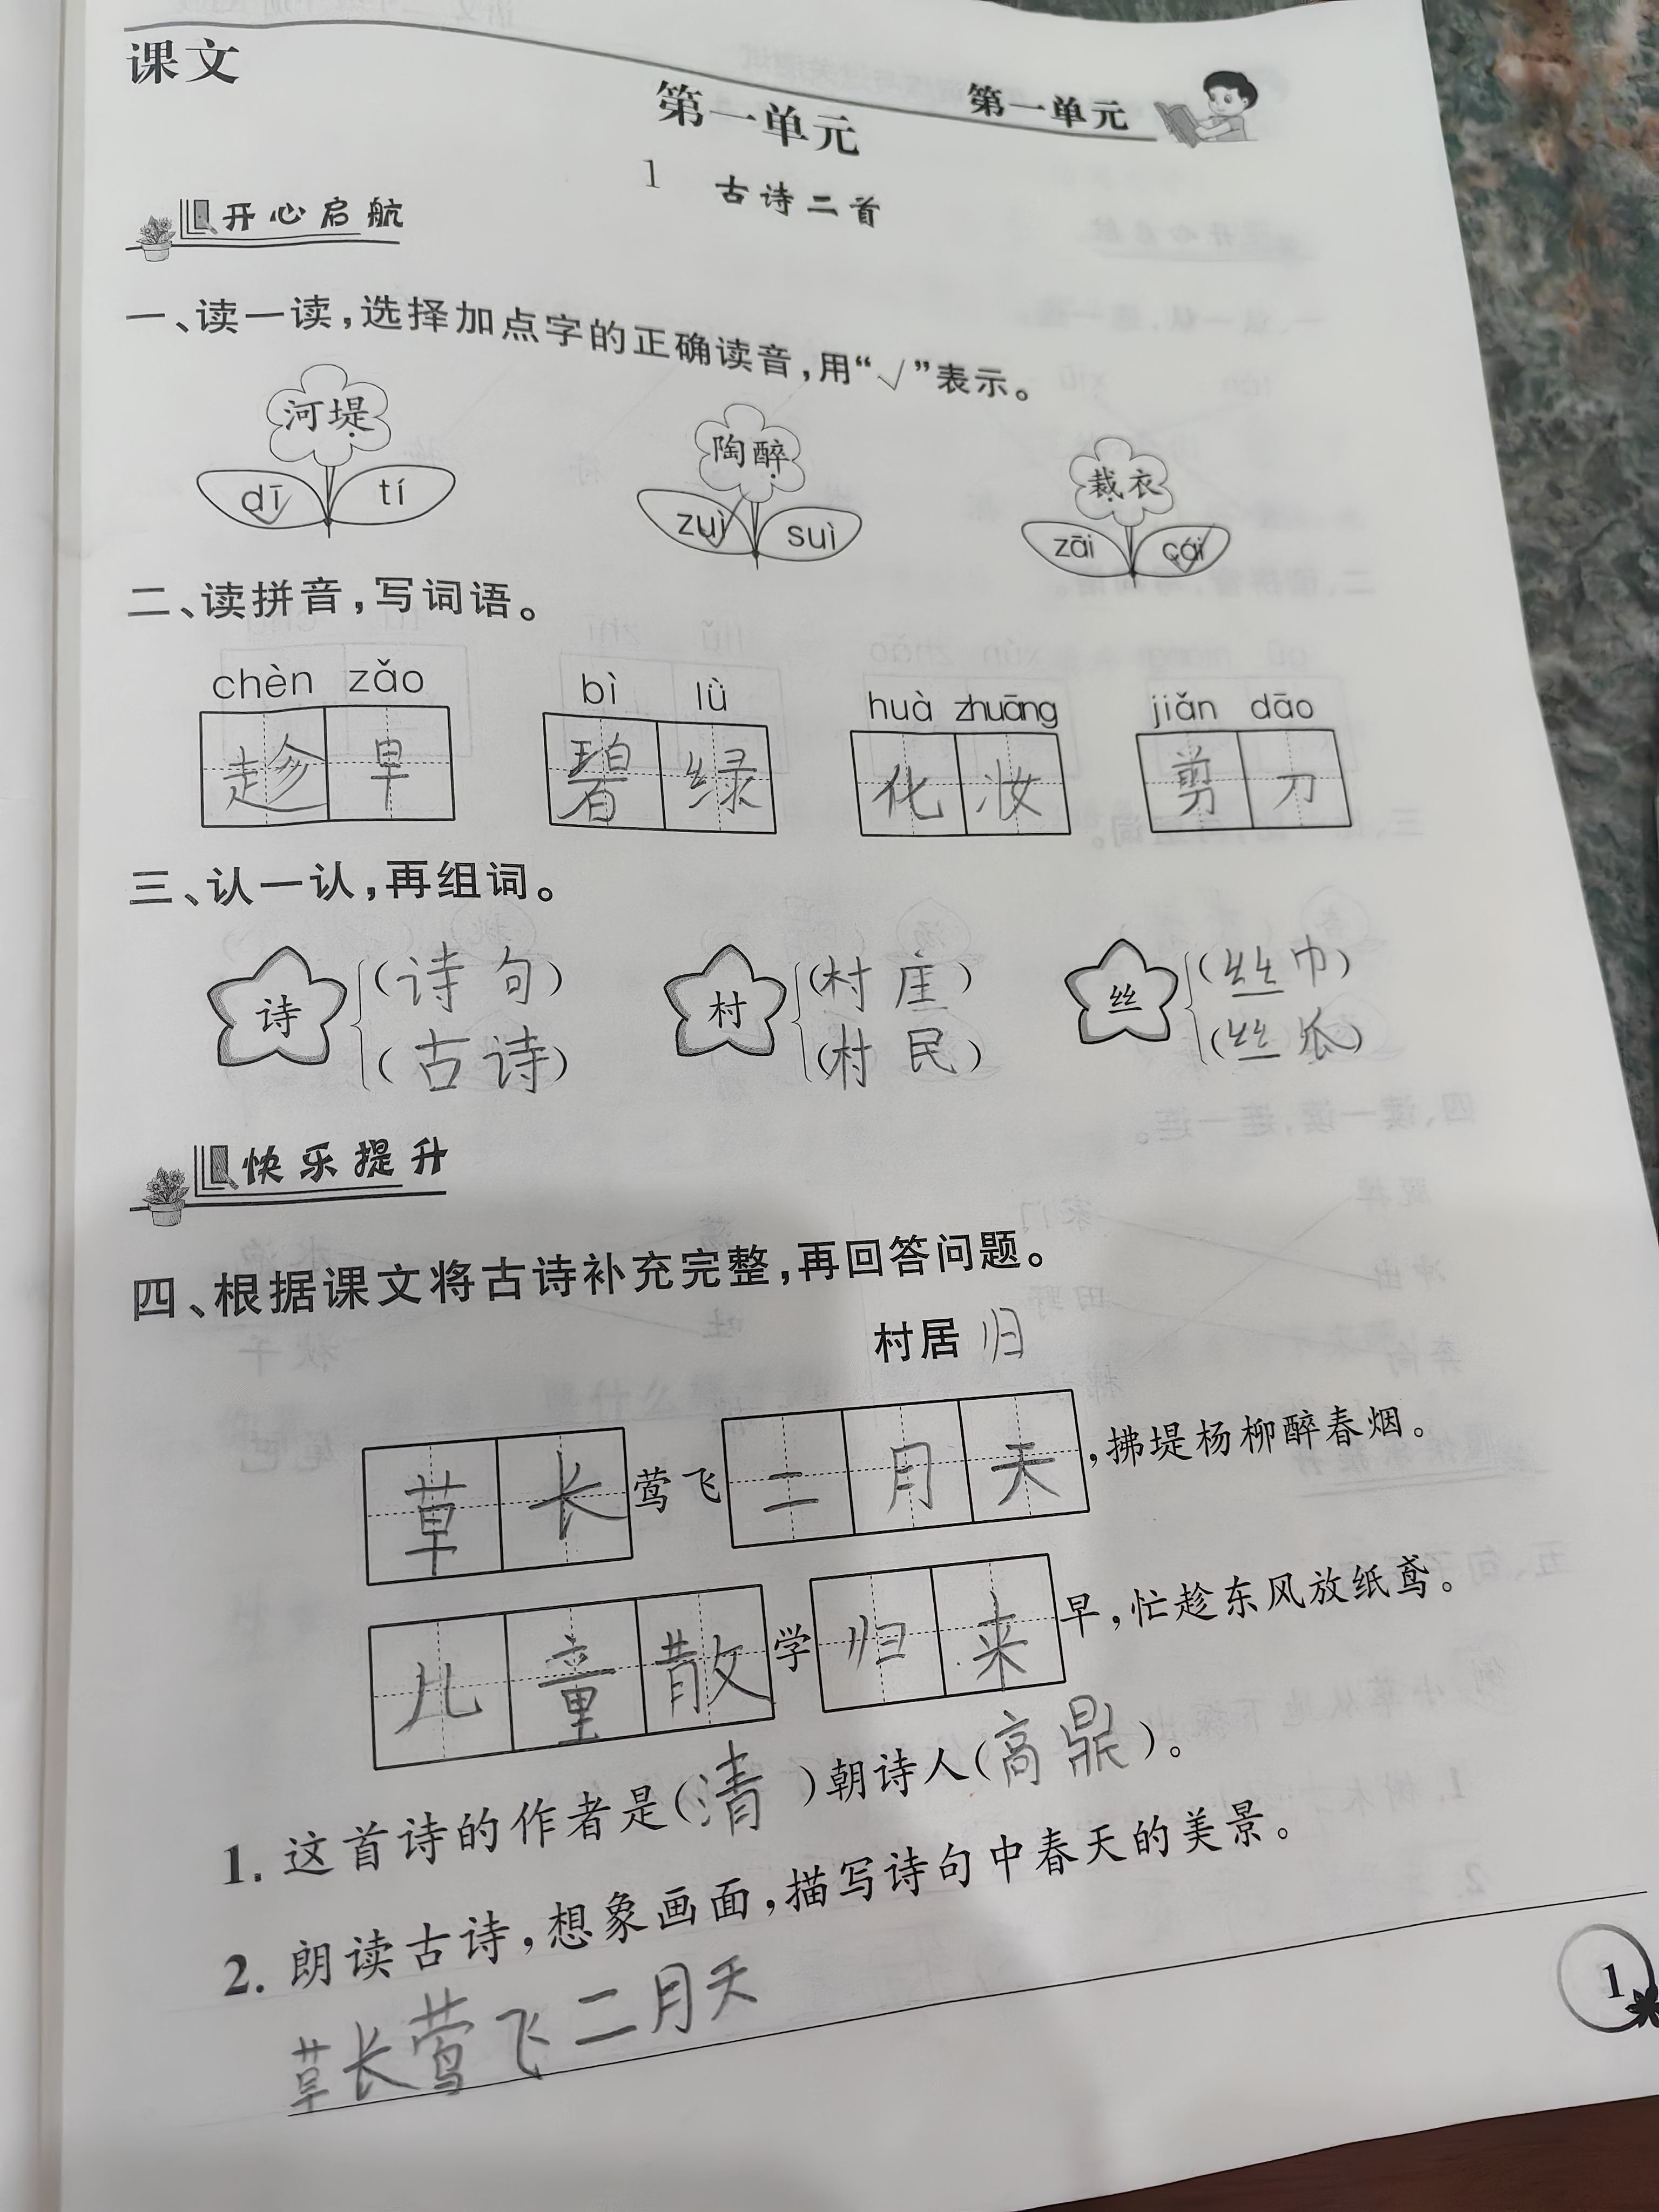 课文
第一单元
第一单元
1 古诗二首
开心启航
一、读一读，选择加点字的正确读音，用“√”表示。
河堤 陶醉 裁衣
dī√ tí zuì√ suì zāi cái√
二、读拼音，写词语。
chèn zǎo bì lǜ huà zhuāng jiǎn dāo
趁早 碧绿 化妆 剪刀
三、认一认，再组词。
诗 (诗句) 村 (村庄) 丝 (丝巾)
(古诗) (村民) (丝瓜)
快乐提升
四、根据课文将古诗补充完整，再回答问题。
村居 归
草长莺飞二月天，拂堤杨柳醉春烟。
儿童散学归来早，忙趁东风放纸鸢。
1. 这首诗的作者是(清)朝诗人(高鼎)。
2. 朗读古诗，想象画面，描写诗句中春天的美景。
草长莺飞二月天
1